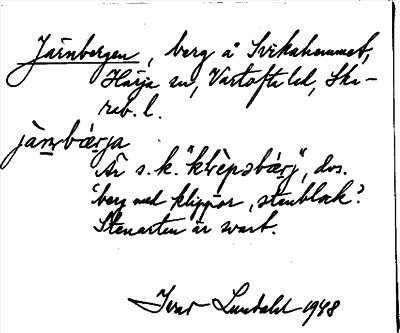 Järnbergen, berg å Svikahemmet,
Härja sn, Vartofta hd, Ska-
rab. l.
jà̀ṇbæ̀rja
Är s.k. "klèpəbærj", dvs.
'berg med klippor, stenblock'.
Stenarten är svart.
Ivar Lundahl 1948